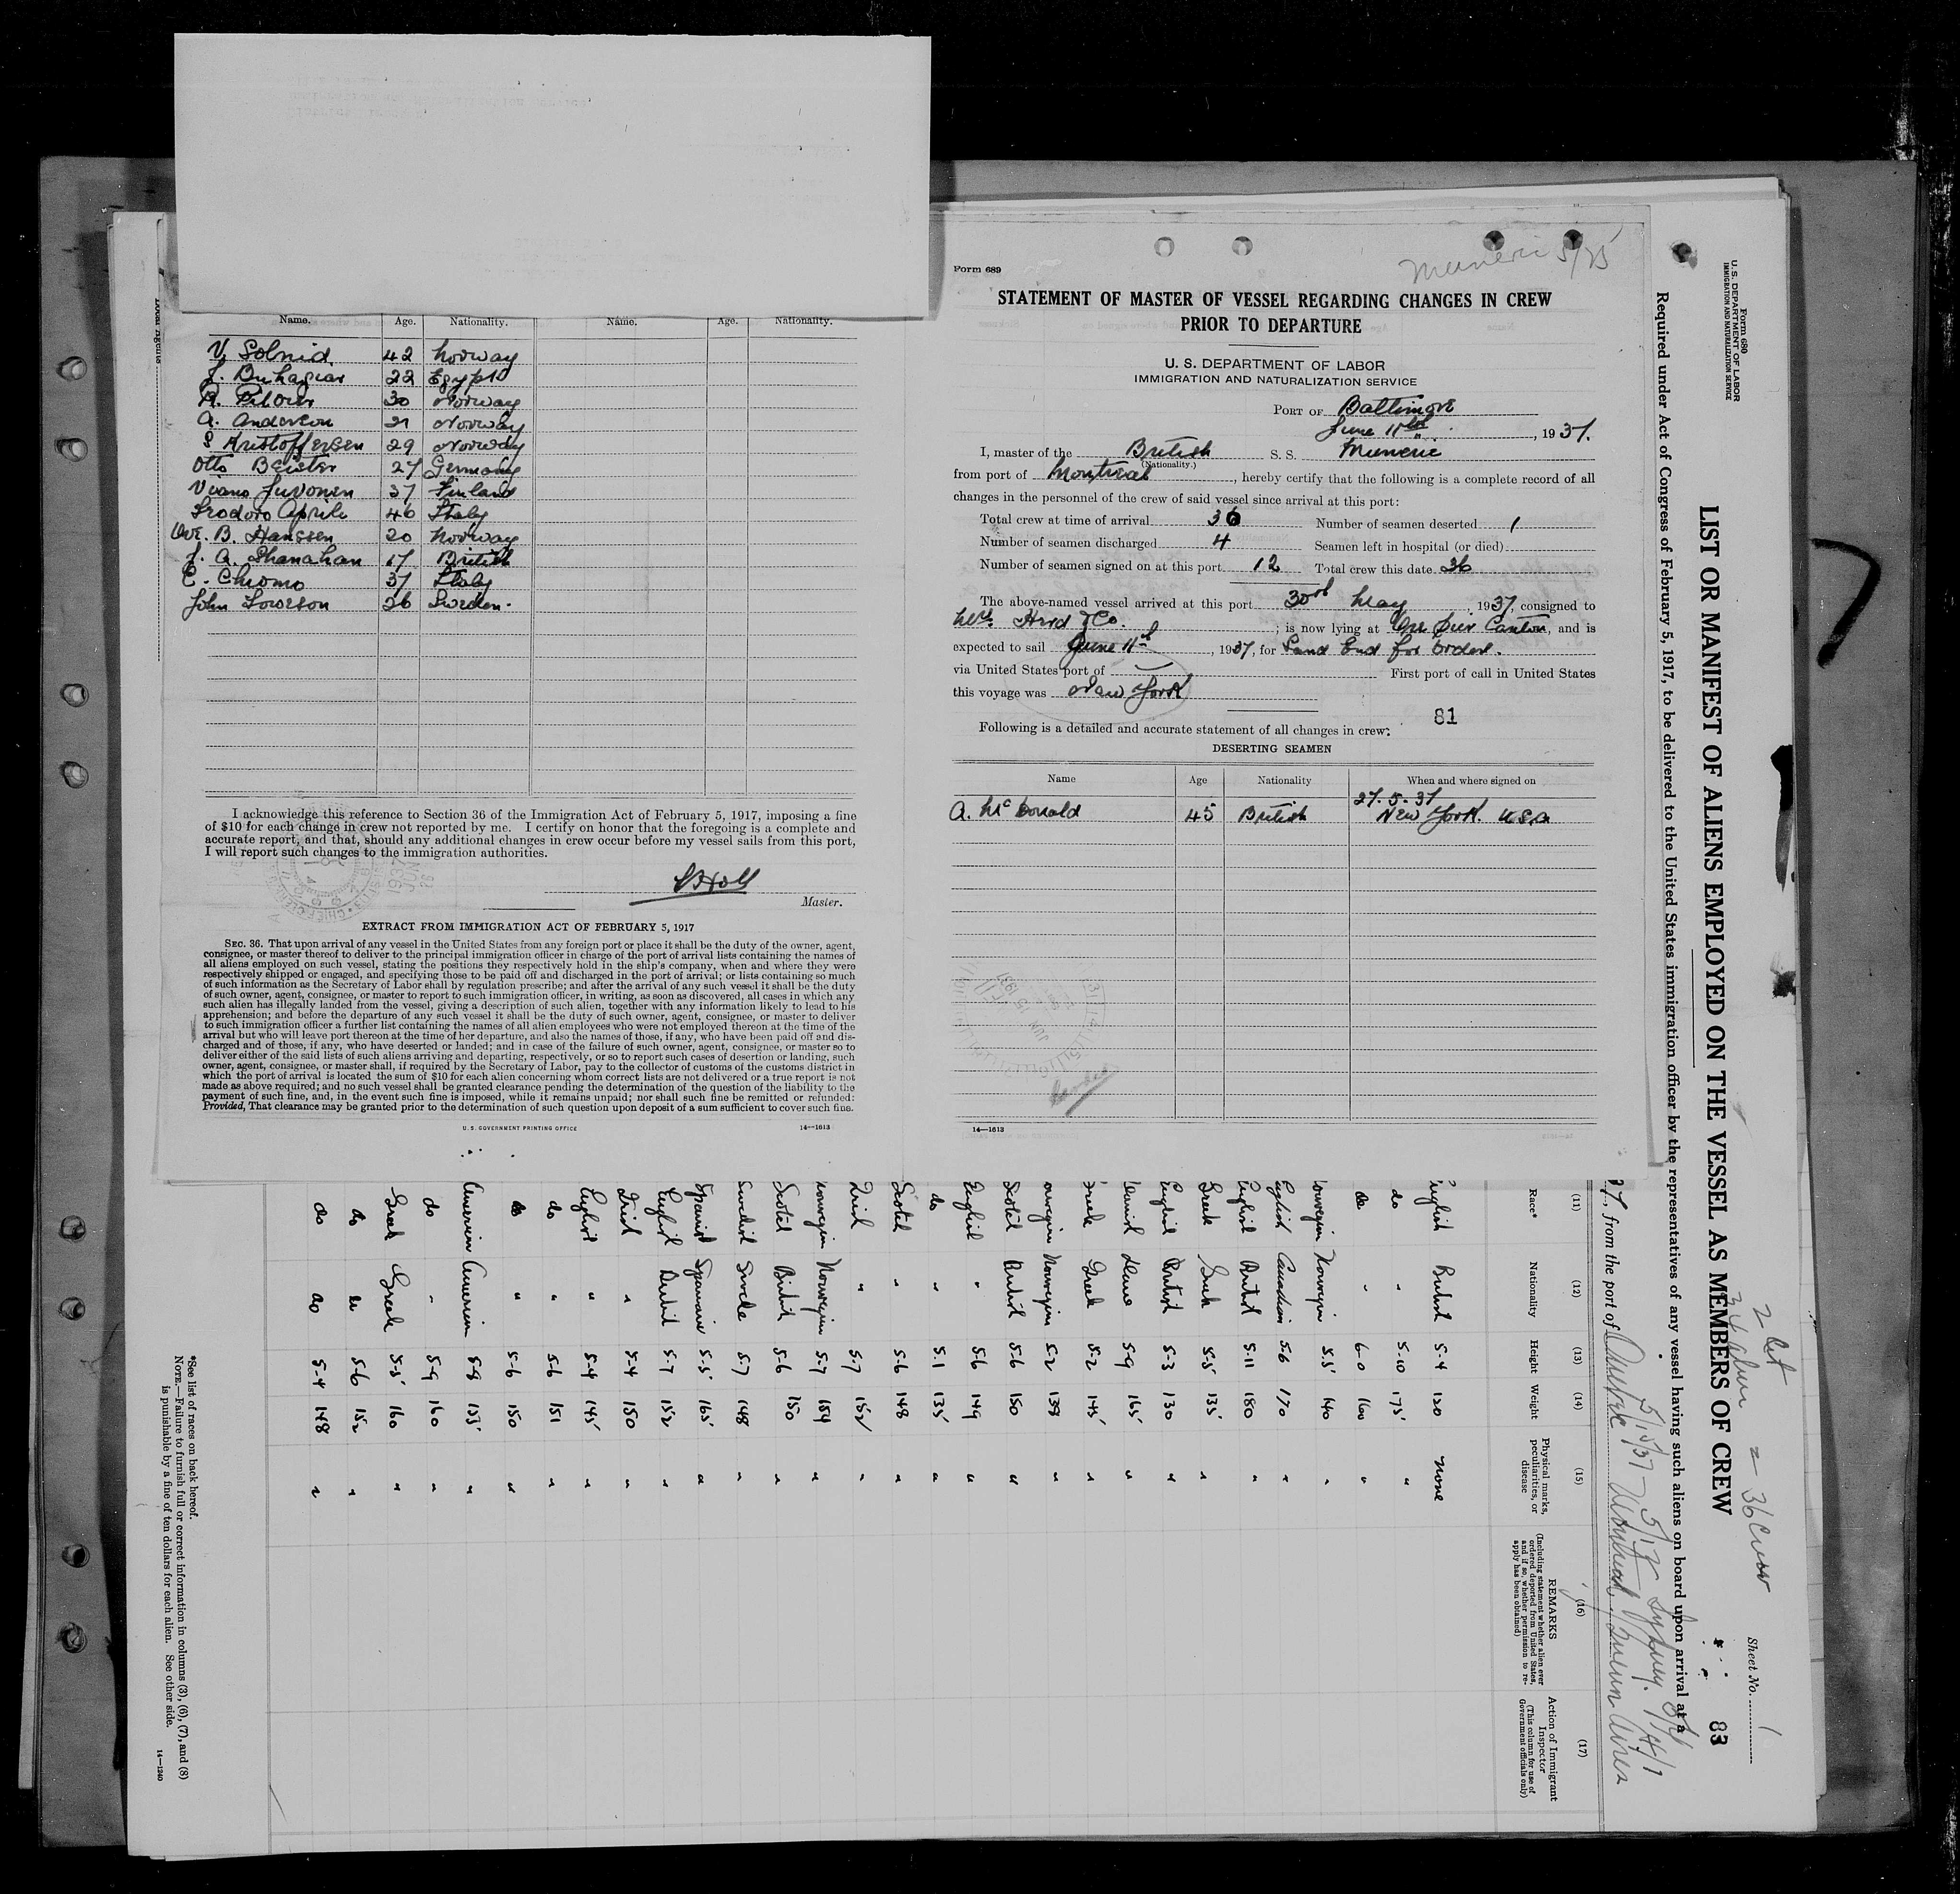 Name. Age. Nationality. Name. Age. Nationality.
V. Solnid 42 Norway
J. Buhagiar 22 Egypt
R. 30 Norway
A. Anderson 21 Norway
S Kristoffersen 29 Norway
Otto Beister 27 Germany
Viano Juvonen 37 Finland
Isodoro Aprile 46 Italy
B. Hanssen 20 Norway
J. A. Shanahan 17 British
E. Chiomo 37 Italy
John Loweson 26 Sweden.
I acknowledge this reference to Section 36 of the Immigration Act of February 5, 1917, imposing a fine
of $10 for each change in crew not reported by me. I certify on honor that the foregoing is a complete and
accurate report, and that, should any additional changes in crew occur before my vessel sails from this port,
I will report such changes to the immigration authorities.
Master.
EXTRACT FROM IMMIGRATION ACT OF FEBRUARY 5, 1917
SEC. 36. That upon arrival of any vessel in the United States from any foreign port or place it shall be the duty of the owner, agent,
consignee, or master thereof to deliver to the principal immigration officer in charge of the port of arrival lists containing the names of
all aliens employed on such vessel, stating the positions they respectively hold in the ship's company, when and where they were
respectively shipped or engaged, and specifying those to be paid off and discharged in the port of arrival; or lists containing so much
of such information as the Secretary of Labor shall by regulation prescribe; and after the arrival of any such vessel it shall be the duty
of such owner, agent, consignee, or master to report to such immigration officer, in writing, as soon as discovered, all cases in which any
such alien has illegally landed from the vessel, giving a description of such alien, together with any information likely to lead to his
apprehension; and before the departure of any such vessel it shall be the duty of such owner, agent, consignee, or master to deliver
to such immigration officer a further list containing the names of all alien employees who were not employed thereon at the time of the
arrival but who will leave port thereon at the time of her departure, and also the names of those, if any, who have been paid off and dis-
charged and of those, if any, who have deserted or landed; and in case of the failure of such owner, agent, consignee, or master so to
deliver either of the said lists of such aliens arriving and departing, respectively, or so to report such cases of desertion or landing, such
owner, agent, consignee, or master shall, if required by the Secretary of Labor, pay to the collector of customs of the customs district in
which the port of arrival is located the sum of $10 for each alien concerning whom correct lists are not delivered or a true report is not
made as above required; and no such vessel shall be granted clearance pending the determination of the question of the liability to the
payment of such fine, and, in the event such fine is imposed, while it remains unpaid; nor shall such fine be remitted or refunded:
Provided, That clearance may be granted prior to the determination of such question upon deposit of a sum sufficient to cover such fine.
U.S. GOVERNMENT PRINTING OFFICE 14—1613
Muneric 5/25
Form 689
STATEMENT OF MASTER OF VESSEL REGARDING CHANGES IN CREW
PRIOR TO DEPARTURE
U. S. DEPARTMENT OF LABOR
IMMIGRATION AND NATURALIZATION SERVICE
PORT OF Baltimore
June 11th, 1937.
I, master of the British S. S. Muneric
(Nationality.)
from port of Montreal, hereby certify that the following is a complete record of all
changes in the personnel of the crew of said vessel since arrival at this port:
Total crew at time of arrival 36 Number of seamen deserted 1
Number of seamen discharged 4 Seamen left in hospital (or died)
Number of seamen signed on at this port 12 Total crew this date 36
The above-named vessel arrived at this port 30th May, 1937, consigned to
Hurd & Co.; is now lying at Ore Pier Canton, and is
expected to sail June 11th, 1937, for Land End for orders.
via United States port of First port of call in United States
this voyage was New York
81
Following is a detailed and accurate statement of all changes in crew:
DESERTING SEAMEN
Name Age Nationality When and where signed on
27.5.37
A. McDonald 45 British New York. USA
14—1613
Form 680
U. S. DEPARTMENT OF LABOR
IMMIGRATION AND NATURALIZATION SERVICE
Sheet No. 1
2 36 Crew
83
LIST OR MANIFEST OF ALIENS EMPLOYED ON THE VESSEL AS MEMBERS OF CREW
Required under Act of Congress of February 5, 1917, to be delivered to the United States immigration officer by the representatives of any vessel having such aliens on board upon arrival at a
, from the port of
(11) (12) (13) (14) (15) (16) (17)
Race* Nationality Height Weight Physical marks, peculiarities, or disease REMARKS (Including statement whether alien ever ordered deported from United States, and if so, whether permission to re-apply has been obtained) Action of Immigrant Inspector (This column for use of Government officials only)
English British 5-4 120 none
do " 5-10 175 "
do " 6-0 160 "
Norwegian Norwegian 5-5 140 "
English Canadian 5-6 170 "
English British 5-11 180 "
Greek Greek 5-5 135 "
English British 5-3 130 "
Danish Dane 5-9 165 "
Greek Greek 5-2 145 "
Norwegian Norwegian 5-2 138 "
Scotch British 5-6 150 "
English " 5-6 149 "
do " 5-1 135 "
Scotch " 5-6 148 "
Irish " 5-7 152 "
Norwegian Norwegian 5-7 154 "
Scotch British 5-6 150 "
Swedish Swede 5-7 148 "
Spanish Spanish 5-5 165 "
English British 5-7 152 "
Irish " 5-4 150 "
English " 5-4 145 "
do " 5-6 151 "
do " 5-6 150 "
American American 5-8 155 "
do " 5-9 160 "
Greek Greek 5-5 160 "
do do 5-6 152 "
do do 5-4 148 "
*See list of races on back hereof.
NOTE.—Failure to furnish full or correct information in columns (3), (6), (7), and (8)
is punishable by a fine of ten dollars for each alien. See other side.
14—1240